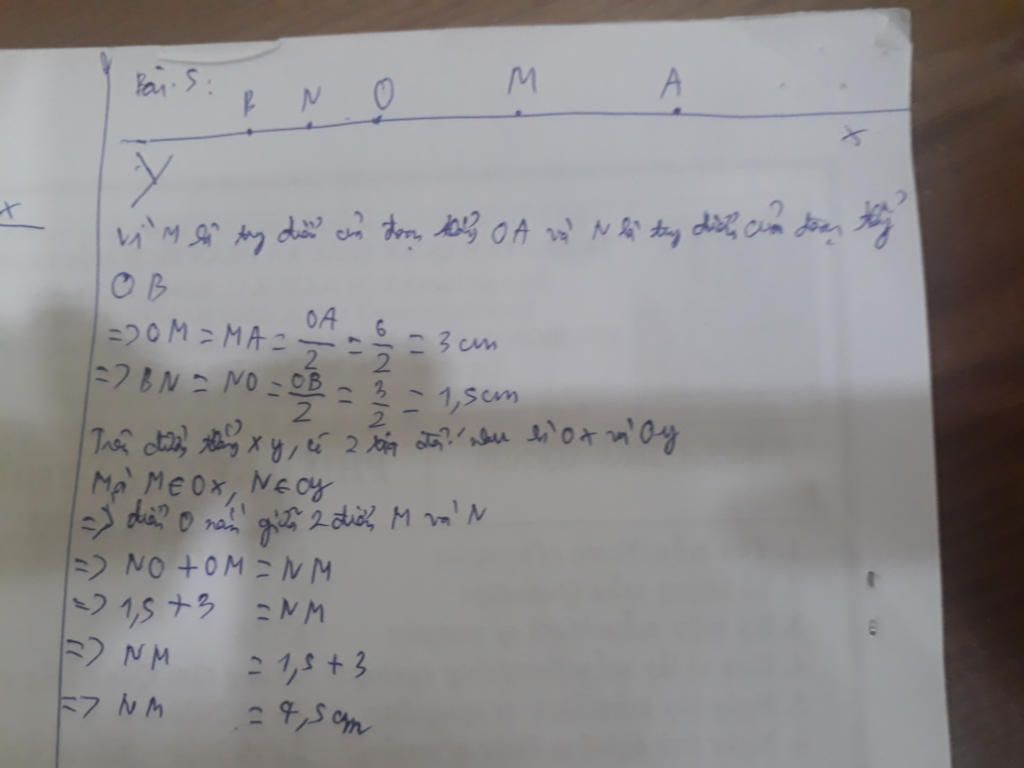 Bài 5:
B N O M A
x
y
x
Vì M là trung điểm của đoạn thẳng OA và N là trung điểm của đoạn thẳng
OB
=> OM = MA = OA/2 = 6/2 = 3 cm
=> BN = NO = OB/2 = 3/2 = 1,5cm
Trên đường thẳng xy, có 2 tia đối nhau là Ox và Oy
Mà M ∈ Ox, N ∈ Oy
=> điểm O nằm giữa 2 điểm M và N
=> NO + OM = NM
=> 1,5 + 3 = NM
=> NM = 1,5 + 3
=> NM = 4,5cm